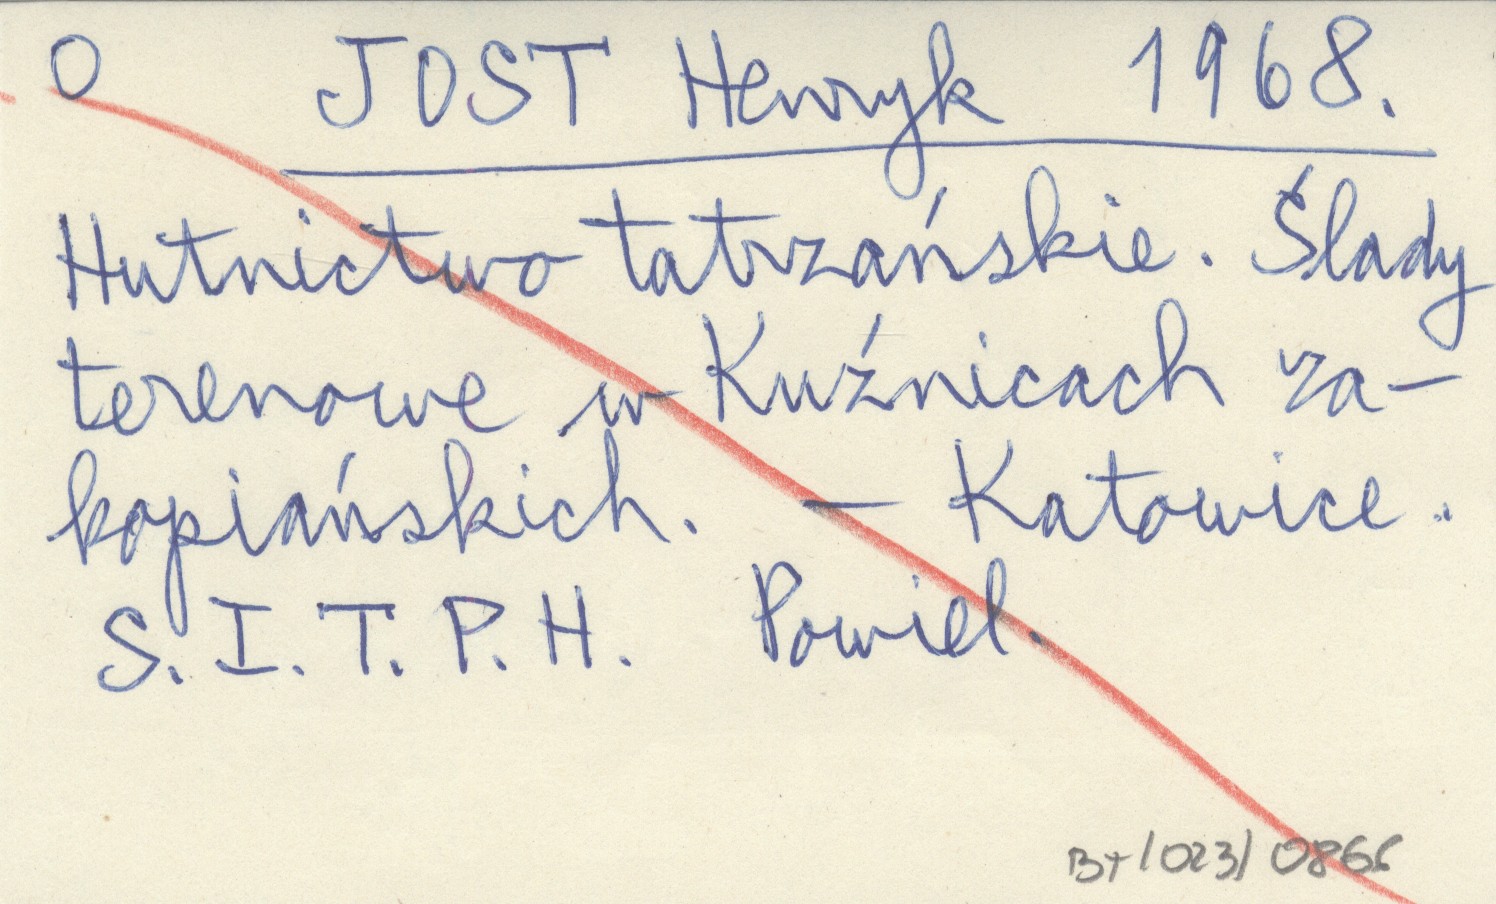 O JOST Henryk 1968.
Hutnictwo tatrzańskie. Ślady
terenowe w Kuźnicach za-
kopiańskich. – Katowice.
S.I.T.P.H. Powiel.
BT/023/0866